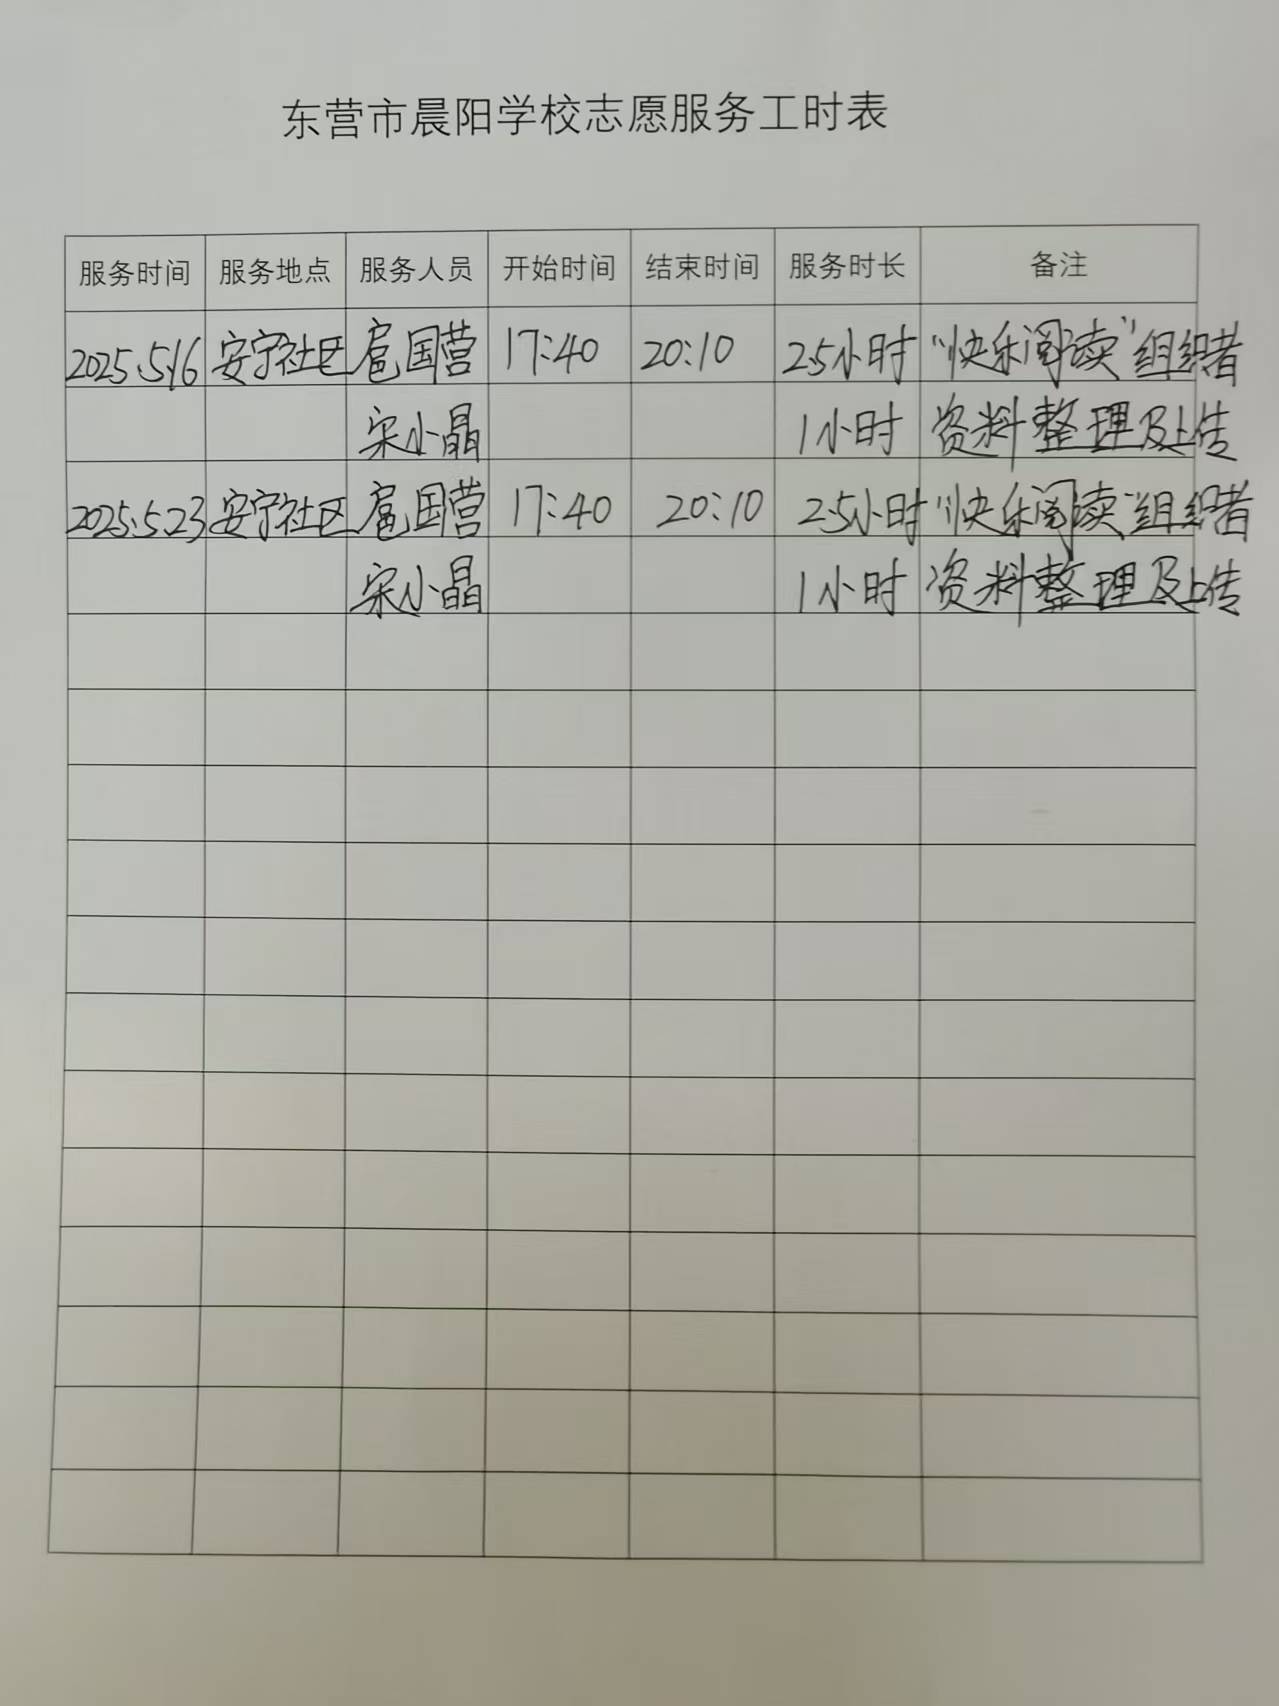 东营市晨阳学校志愿服务工时表
服务时间 服务地点 服务人员 开始时间 结束时间 服务时长 备注
2025.5.16 安宁社区 扈国营 17:40 20:10 2.5小时 “快乐阅读”组织者
宋小晶 1小时 资料整理及上传
2025.5.23 安宁社区 扈国营 17:40 20:10 2.5小时 “快乐阅读”组织者
宋小晶 1小时 资料整理及上传